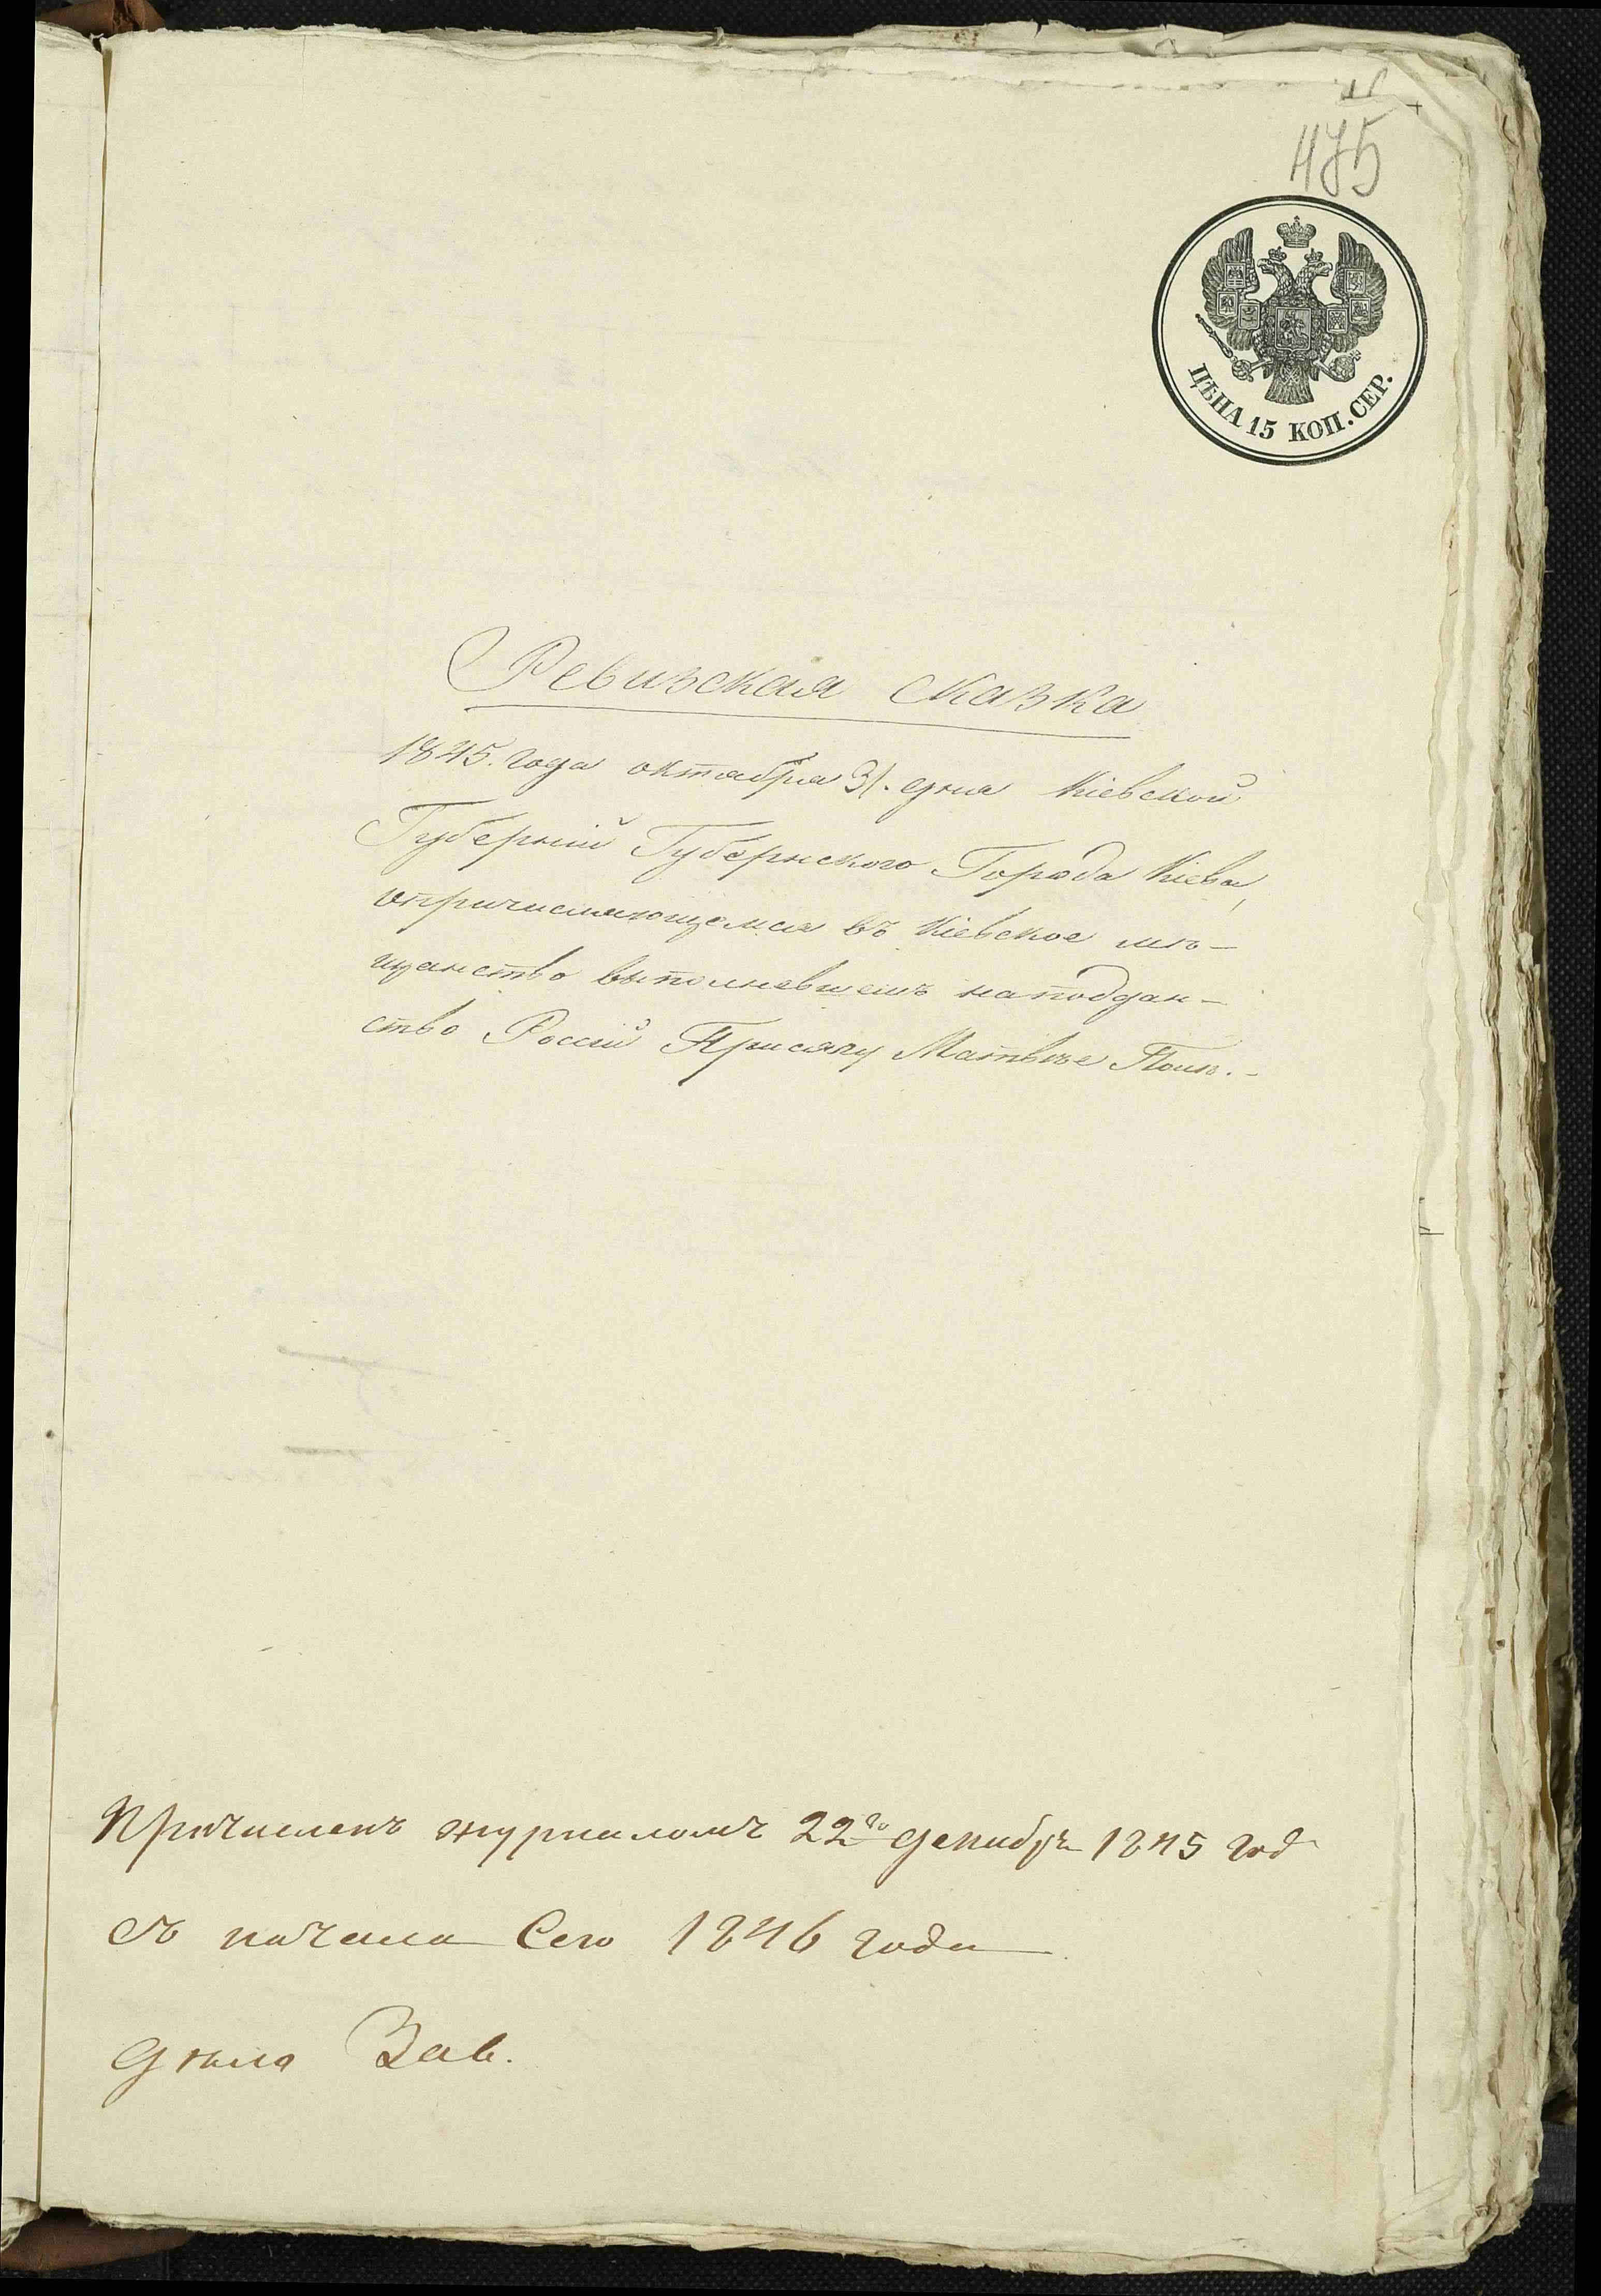 475
ЦѢНА 15 КОП. СЕР.
Ревизская сказка
1845. года октября 31. дня Кіевской
Губерніи Губернского Города Кіева,
опричисляющемся въ Кіевское мѣ-
щанство выполневшемъ на поддан-
ство Россіи Присягу Матвѣе Поль.-
Причисленъ журналомъ 22го декабря 1845 года
съ начала Сего 1846 года
дѣло Зав.